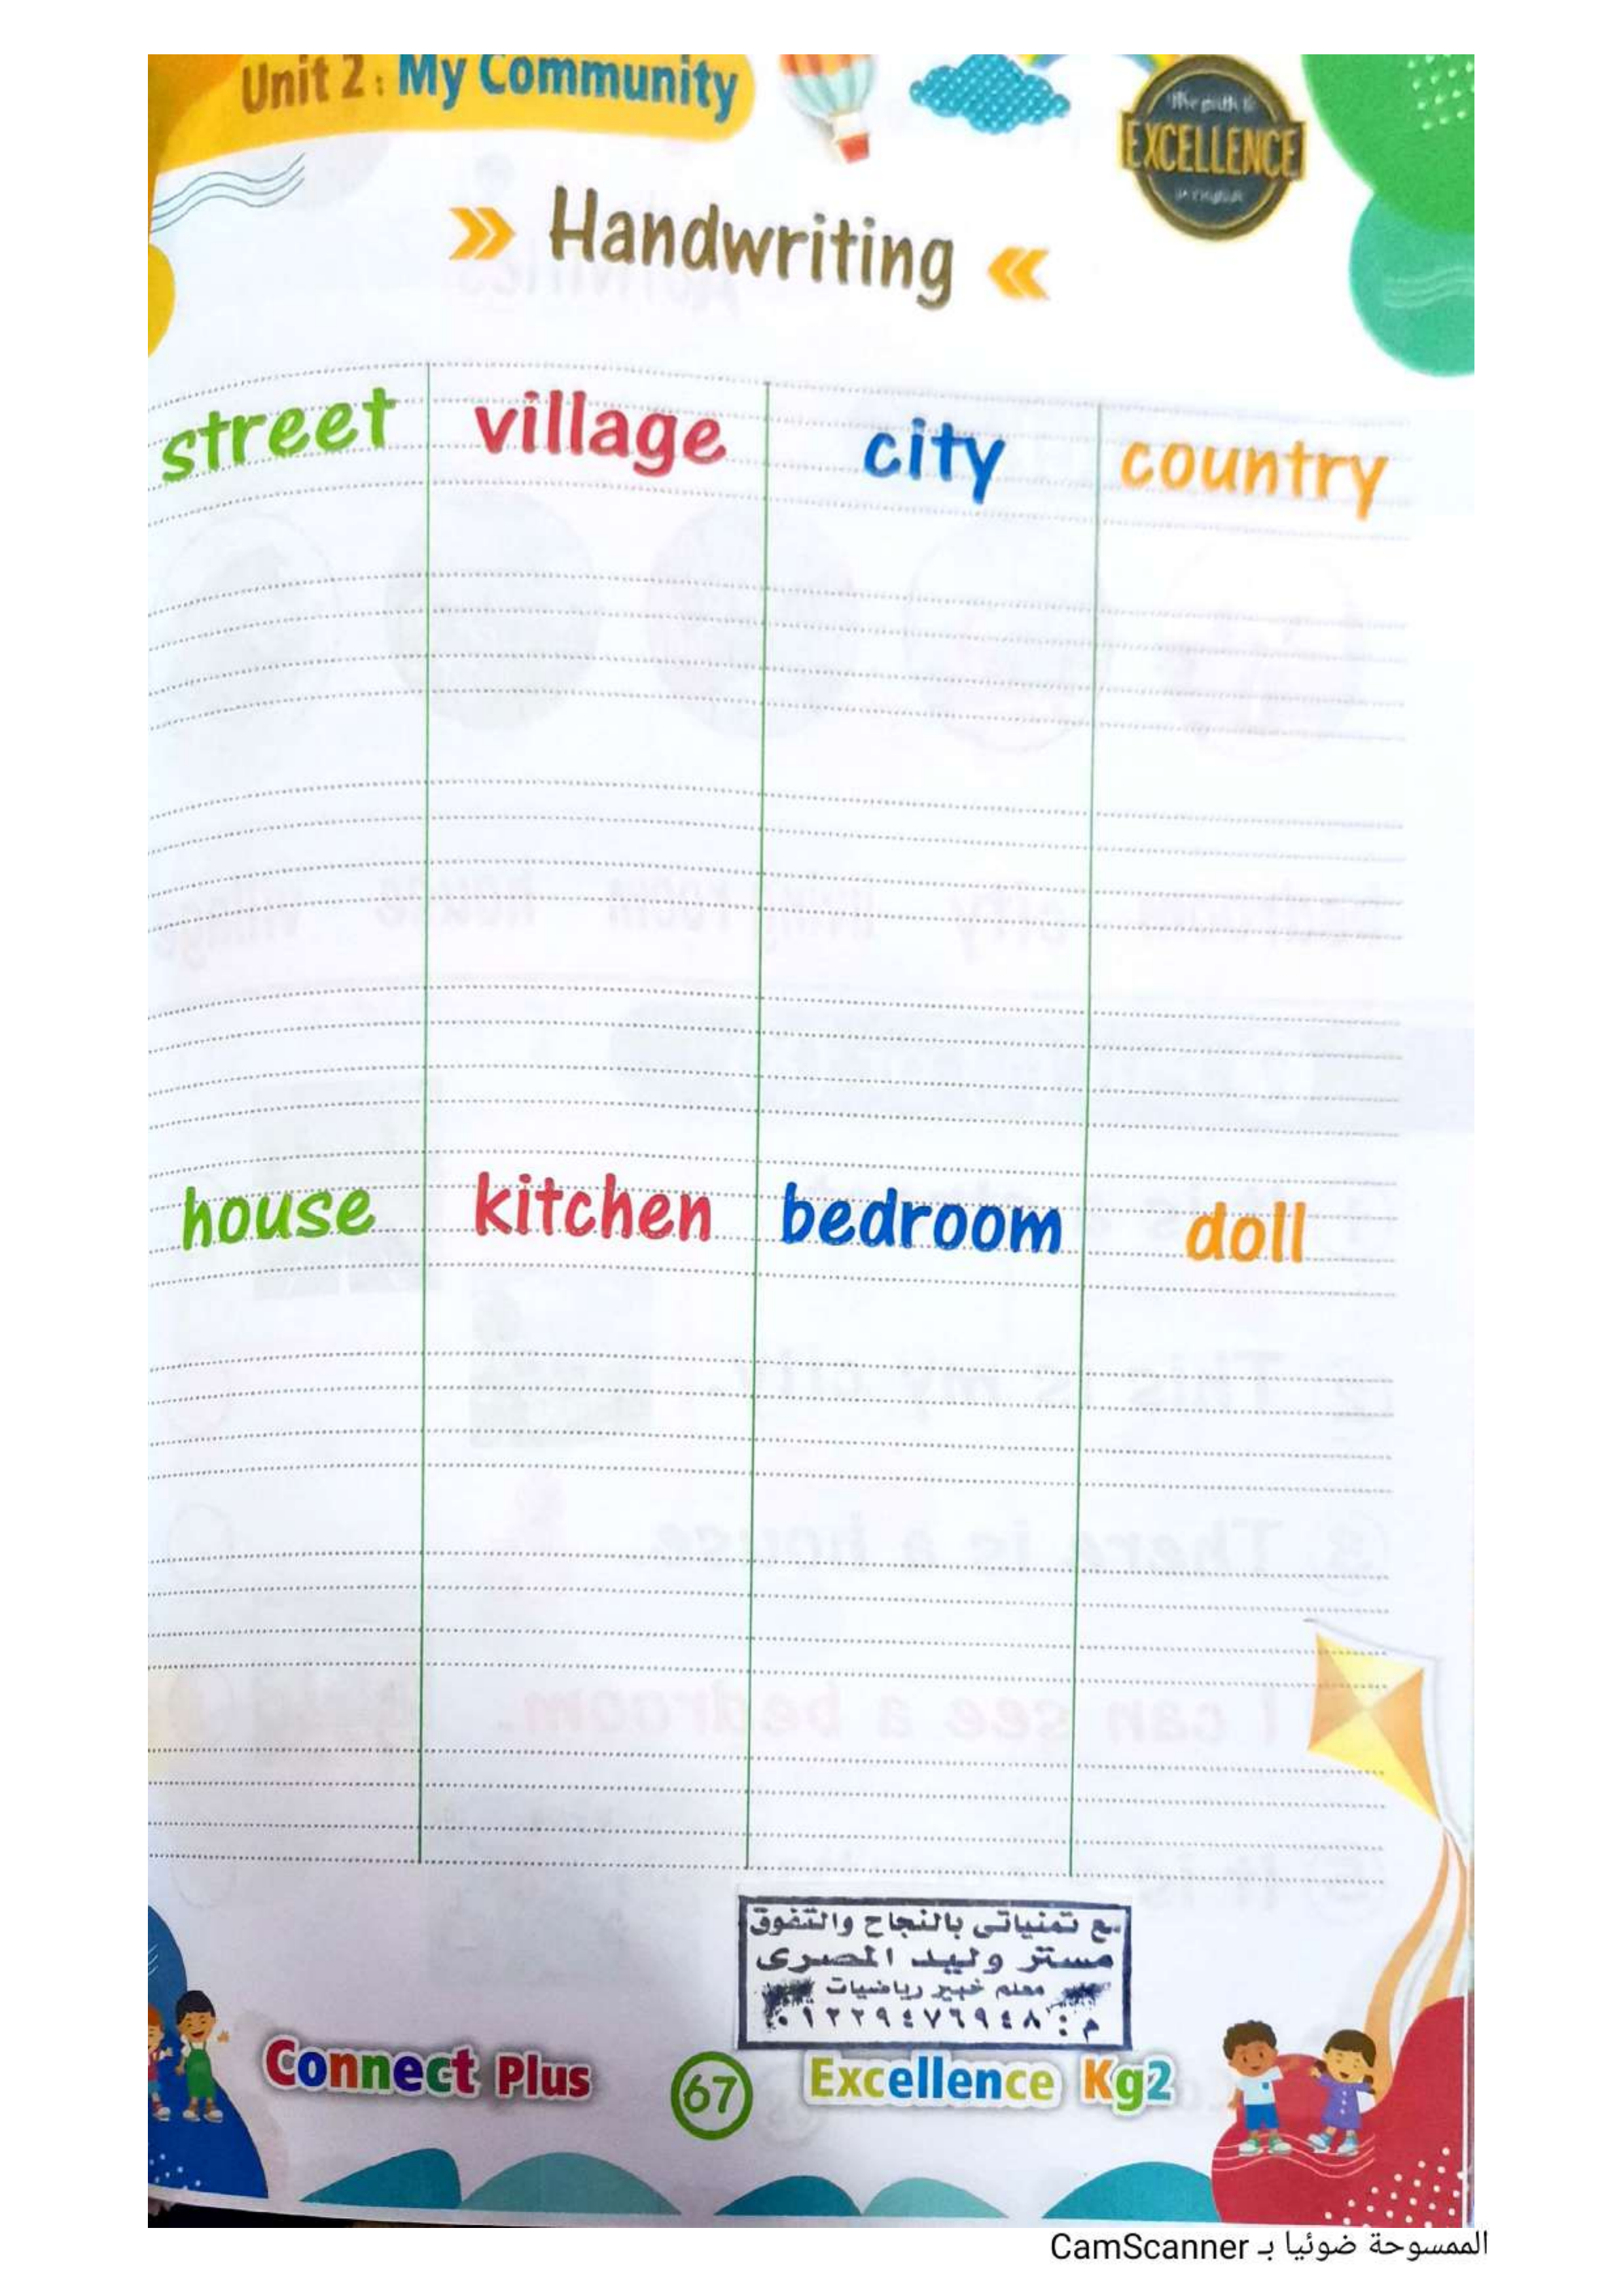 Unit 2 : My Community
The path to
EXCELLENCE
in English
Handwriting
street village city country
house kitchen bedroom doll
مع تمنياتى بالنجاح والتفوق
مستر وليد المصرى
معلم خبير رياضيات
م : ٠١٢٢٩٤٧٦٩٤٨
Connect Plus 67 Excellence Kg2
الممسوحة ضوئيا بـ CamScanner